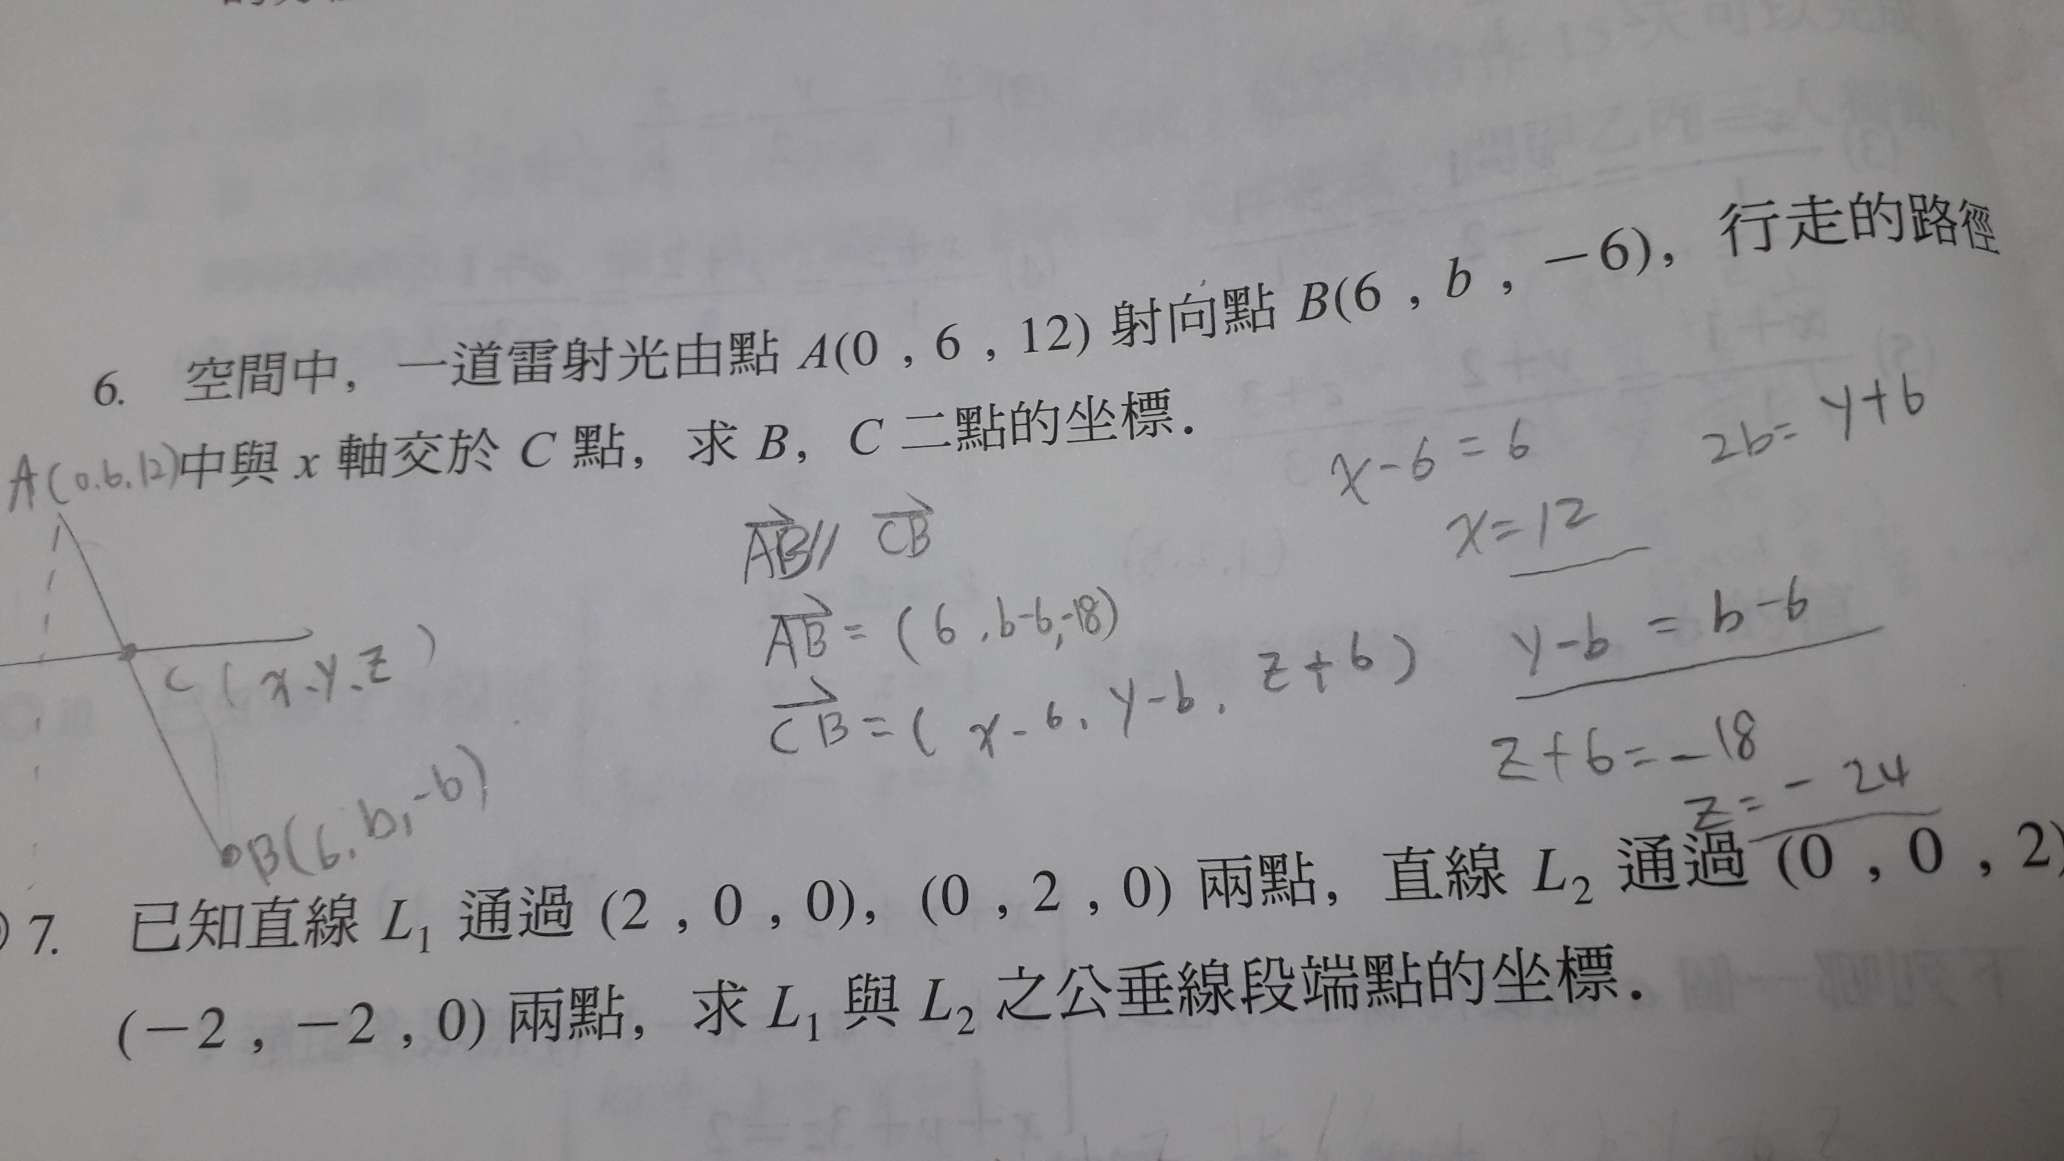 6. 空間中，一道雷射光由點 A(0 , 6 , 12) 射向點 B(6 , b , −6)，行走的路徑
中與 x 軸交於 C 點，求 B，C 二點的坐標．
A(0.6.12)
C(x.y.z)
B(6,b,-6)
AB // CB
AB = (6, b-6, -18)
CB = (x-6, y-b, z+6)
x-6=6
x=12
2b=y+6
y-b=b-6
z+6=-18
z=-24
7. 已知直線 L₁ 通過 (2 , 0 , 0)，(0 , 2 , 0) 兩點，直線 L₂ 通過 (0 , 0 , 2)
(−2 , −2 , 0) 兩點，求 L₁ 與 L₂ 之公垂線段端點的坐標．